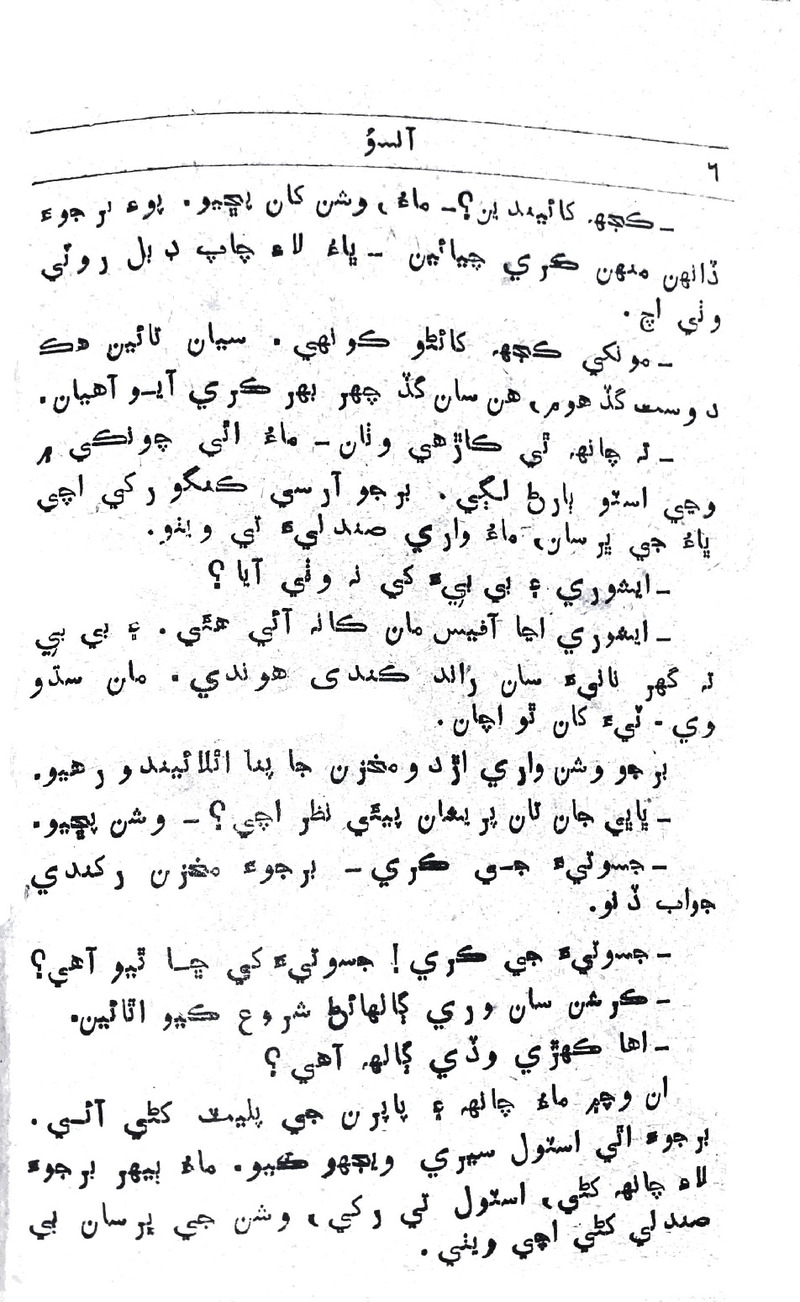 آلسوُ
٦
ـ ڪجهہ کائيندين؟ ـ ماءُ، وشن کان پڇيو. پوءِ برجوءَ
ڏانهن منهن ڪري چيائين ـ ڀاءُ لاءِ چاپ ڊبل روٽي
وٺي اچ.
ـ مونکي ڪجهہ کائڻو ڪونهي. سيان تائين هڪ
دوست گڏ هوم، هن سان گڏ چهر ٻهر ڪري آيو آهيان.
ـ تہ چانهہ ٿي ڪاڙهي وٺان ـ ماءُ اٿي چونڪي ۾
وڃي اسٽو ٻارڻ لڳي. برجو آرسي ڪنگو رکي اچي
ڀاءُ جي ڀرسان، ماءُ واري صندليءَ تي ويٺو.
ـ ايشوري ۽ بي بيءَ کي نہ وٺي آيا؟
ـ ايشوري اڃا آفيس مان ڪانہ آئي هئي. ۽ بي بي
تہ گهر نانيءَ سان راند ڪندي هوندي. مان سڌو
وي۔ٽيءَ کان ٿو اچان.
برجو وشن واري اڙدو مخزن جا پنا اٿلائيندو رهيو.
ـ ڀاڀي جان تان پريشان پيئي نظر اچي؟ ـ وشن پڇيو.
ـ جسوتيءَ جي ڪري ـ برجوءَ مخزن رکندي
جواب ڏنو.
ـ جسوتيءَ جي ڪري! جسوتيءَ کي ڇا ٿيو آهي؟
ـ ڪرشن سان وري ڳالهائڻ شروع ڪيو اٿائين.
ـ اها ڪهڙي وڏي ڳالهہ آهي؟
ان وچ۾ ماءُ چانهہ ۽ پاپرن جي پليٽ کڻي آئي.
برجوءَ اٿي اسٽول سيري ويجهو ڪيو. ماءُ ٻيهر برجوءَ
لاءِ چانهہ کڻي، اسٽول تي رکي، وشن جي ڀرسان ٻي
صندلي کڻي اچي ويٺي.